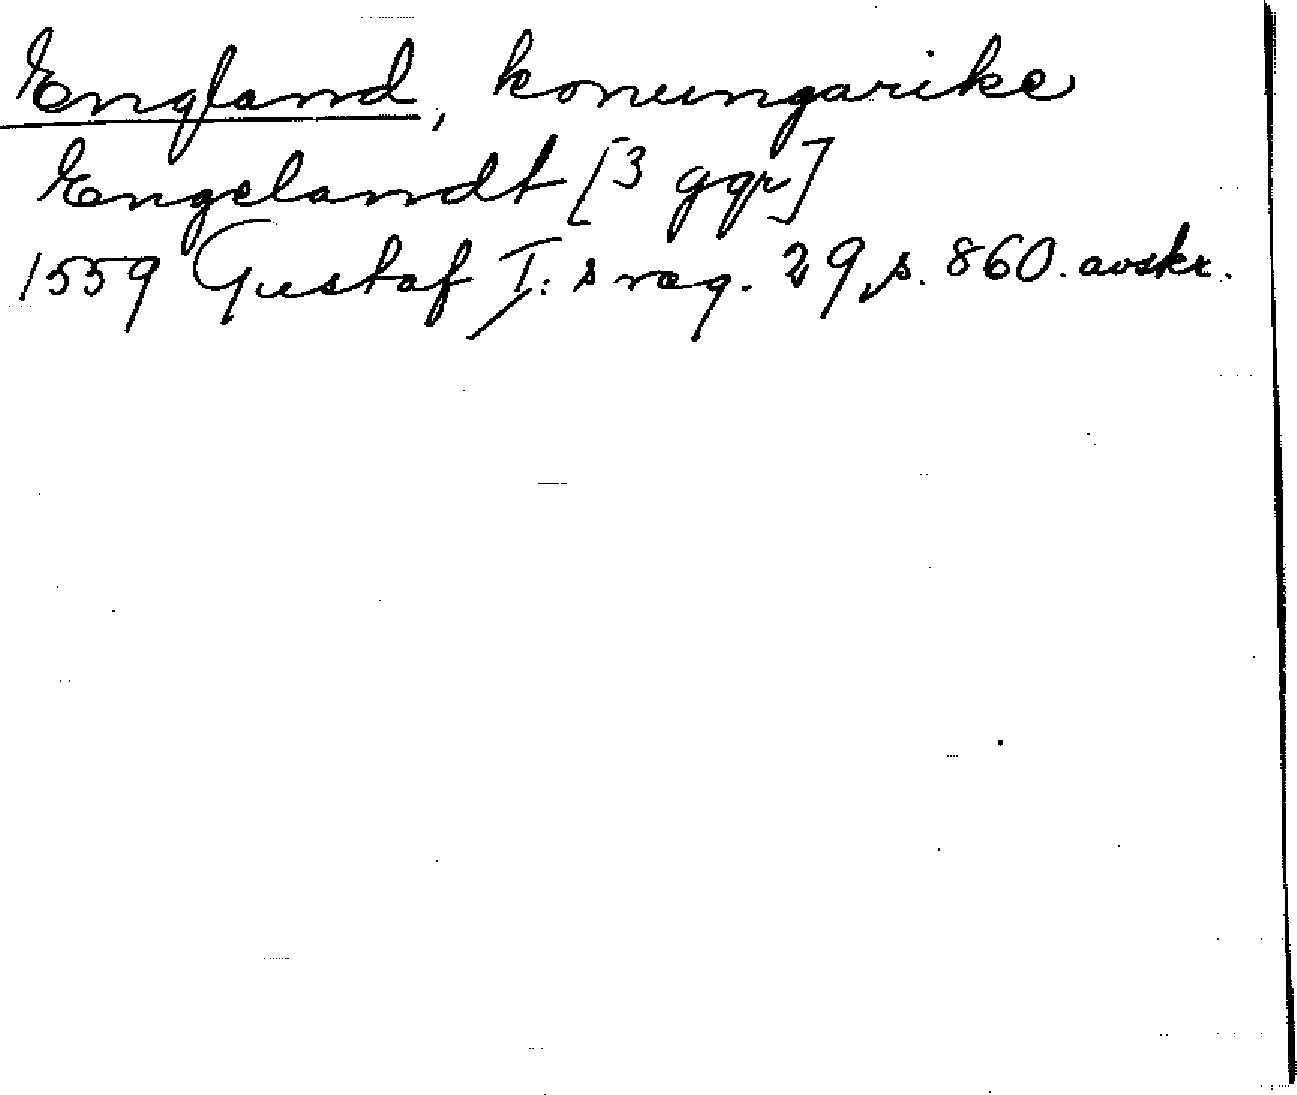 England, konungarike
Engelandt [3 ggr]
1559 Gustaf I:s reg. 29, s. 860. avskr.